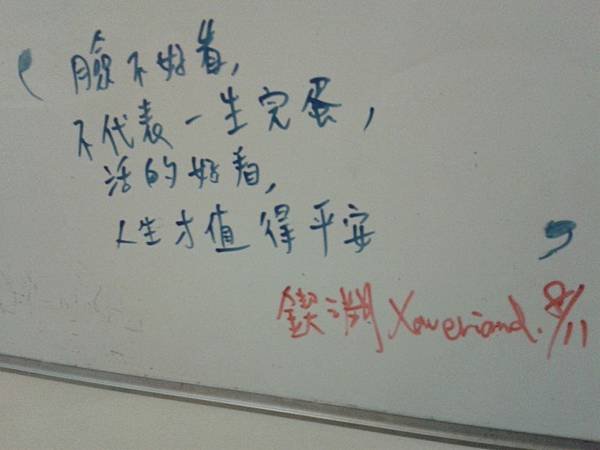 臉不好看,
不代表一生完蛋,
活的好看,
人生才值得平安
8/11